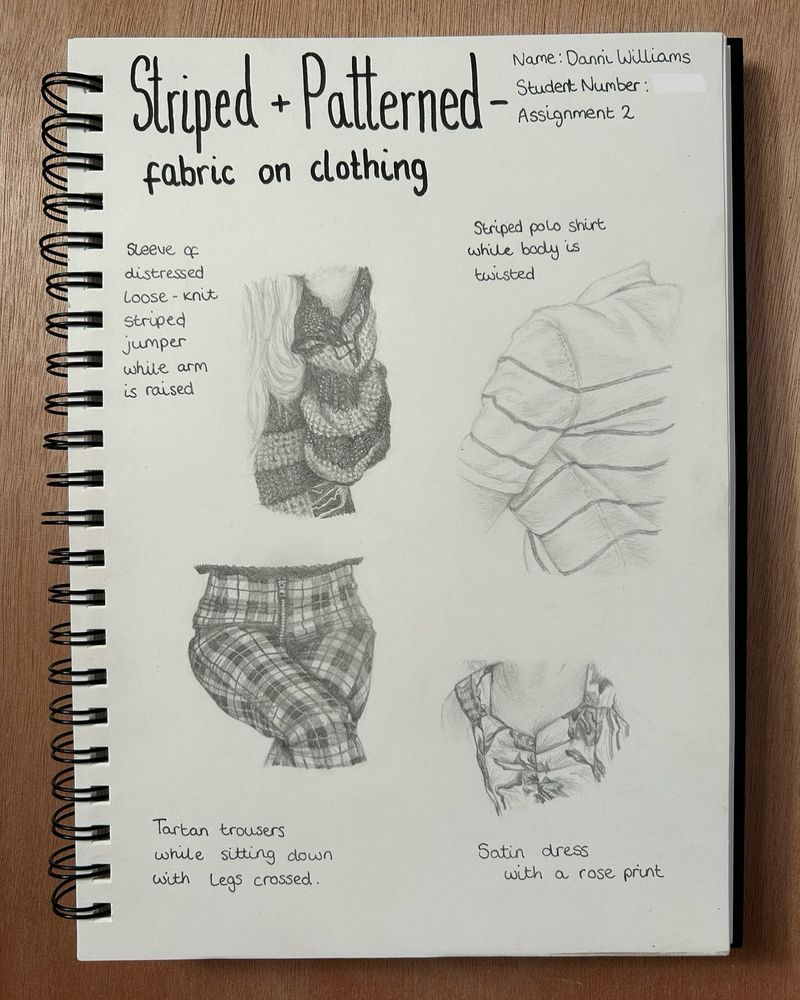 Striped + Patterned -
fabric on clothing
Name: Danni Williams
Student Number:
Assignment 2
Sleeve of
distressed
loose-knit
striped
jumper
while arm
is raised
Striped polo shirt
while body is
twisted
Tartan trousers
while sitting down
with Legs crossed.
Satin dress
with a rose print